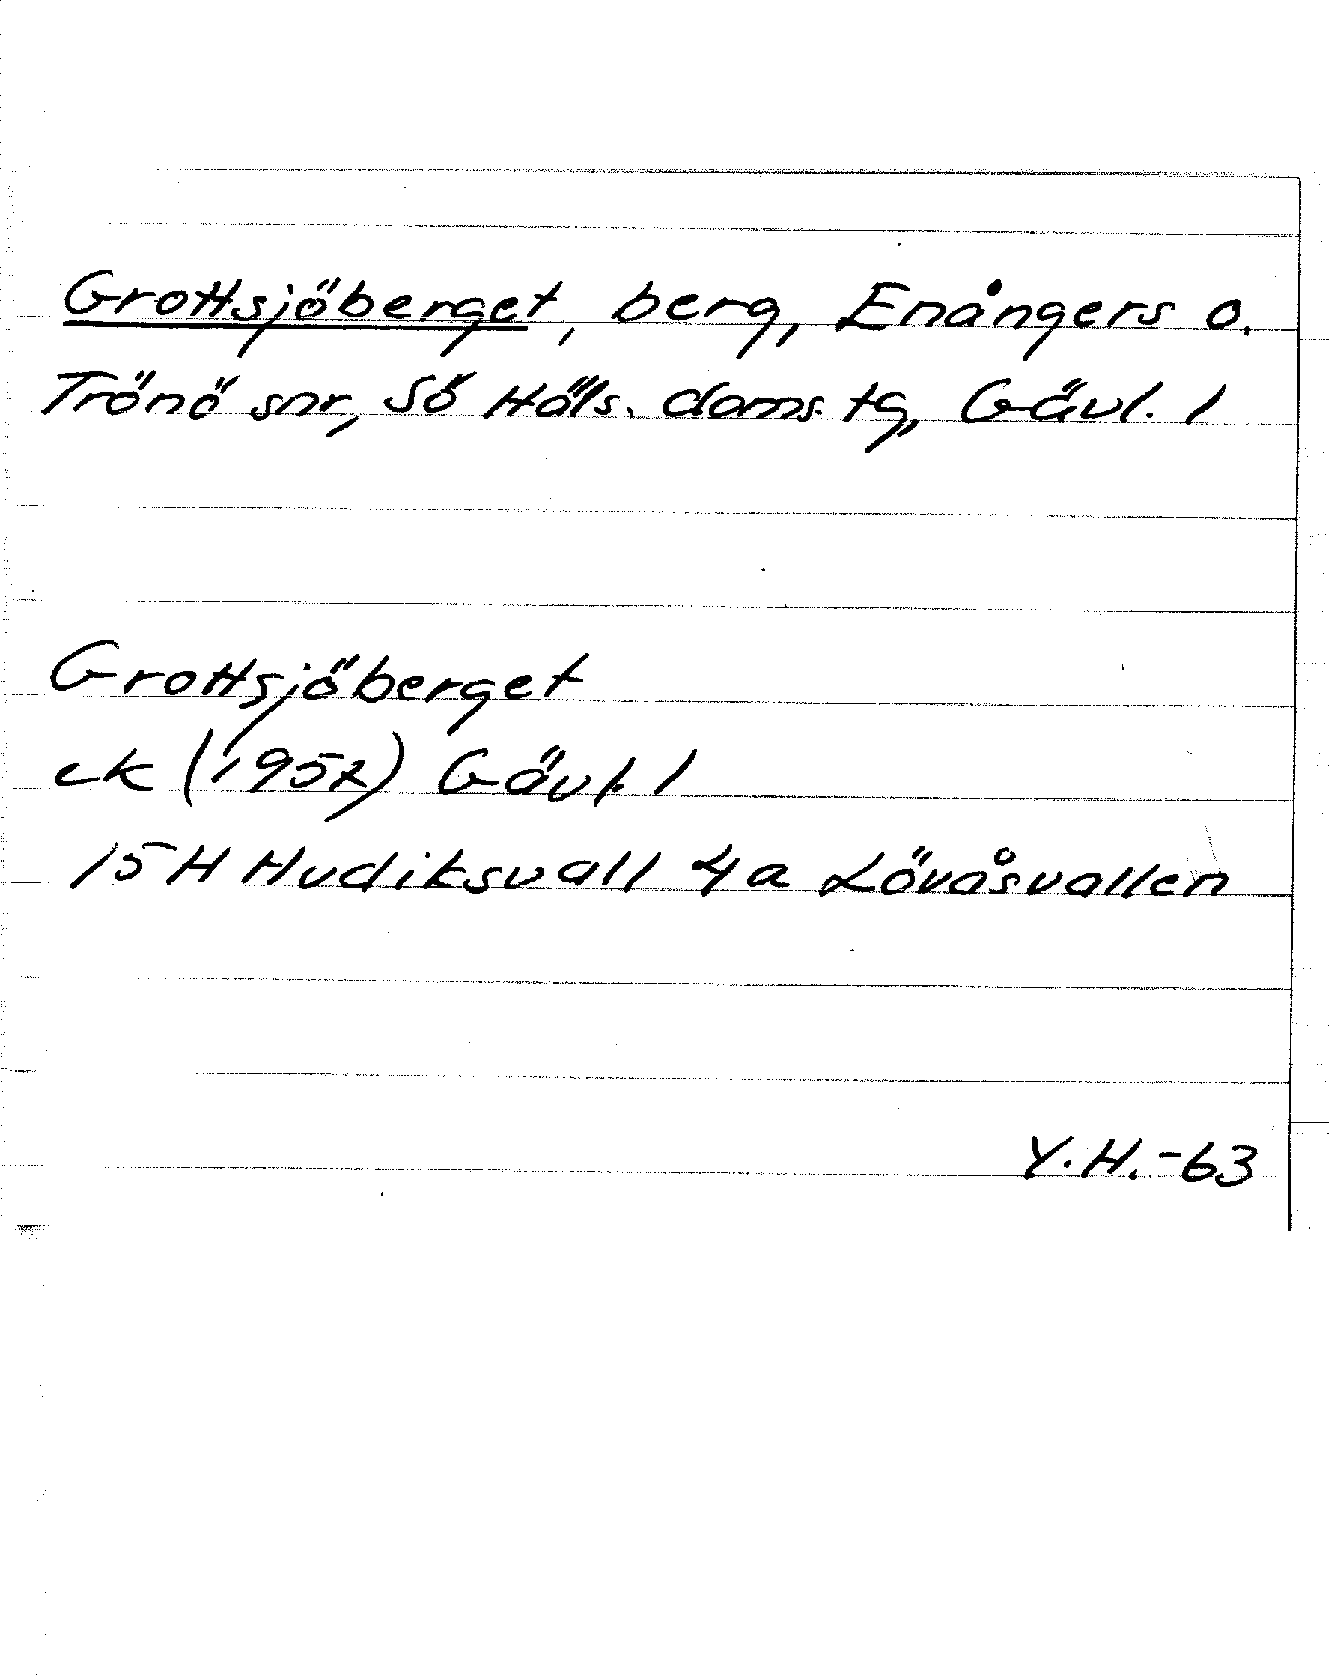 Grottsjöberget, berg, Enångers o.
Trönö snr, Sö Häls. doms. tg, Gävl. l
Grottsjöberget
ek (1957) Gävl. l
15 H Hudiksvall 4 a Lövåsvallen
Y.H.-63